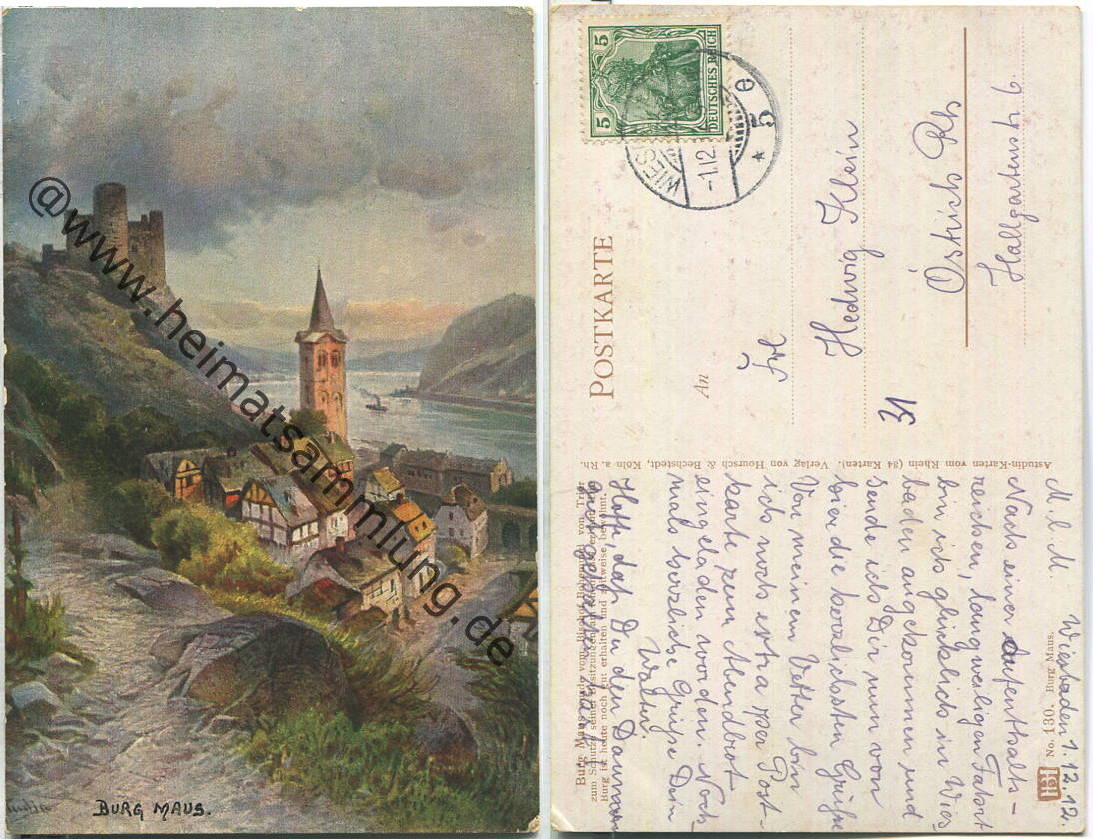 @www.heimatsammlung.de
BURG MAUS.
5 5
DEUTSCHES REICH
WIESB
-1.12
5
POSTKARTE
An
Frl
Hedwig Klein
Östrich Rh
Hallgartenstr 6.
31
Astudin-Karten vom Rhein (84 Karten). Verlag von Hoursch & Bechstedt, Köln a. Rh.
No. 130. Burg Maus.
Burg Maus wurde vom Bischof Boemund von Trier
zum Schutze seiner Besitzungen am Rhein
Burg ist heute noch gut erhalten und zeitweise bewohnt.
Wiesbaden 1.12.12.
M. l. M.
Nach einer Aufenthalts-
reichen, langweiligen Fahrt
bin ich glücklich in Wies
baden angekommen und
sende ich Dir nun von
hier die herzlichsten Grüße
Von meinem Vetter bin
ich noch extra per Post-
karte zum Abendbrot
eingeladen worden. Noch
mals herzliche Grüße Dein
Walter
Hoffe daß Du den Daumen